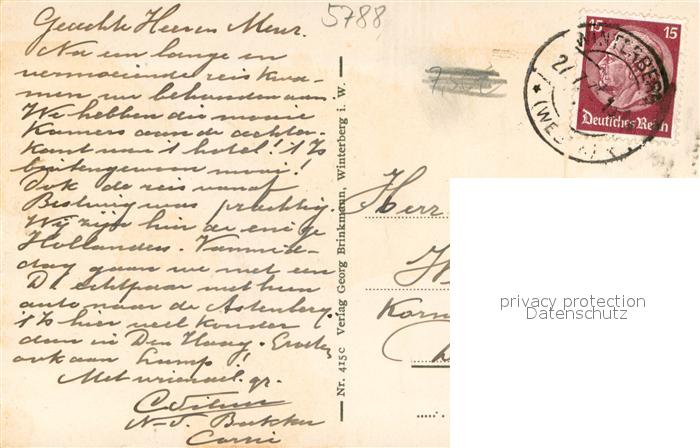 5788
Geachte Heeren Meur.
Na een lange en
vermoeiende reis kwa-
men we behouden aan
We hebben die mooie
Kamers aan de achter-
kant van 't hotel! 't Is
buitengewoon mooi!
Ook de reis vanaf
was prachtig.
Wij zijn hier de enige
Hollanders. Vanmid-
dag gaan we met een
D. echtpaar met hun
auto naar de Astenberg.
't Is hier veel kouder
dan in Den Haag!
ook aan
Met vriendel. gr.
Bakker
Corrie
Nr. 415c Verlag Georg Brinkmann, Winterberg i. W.
15 15
Deutsches Reich
WINTERBERG
(WESTF.)
Herr
privacy protection
Datenschutz